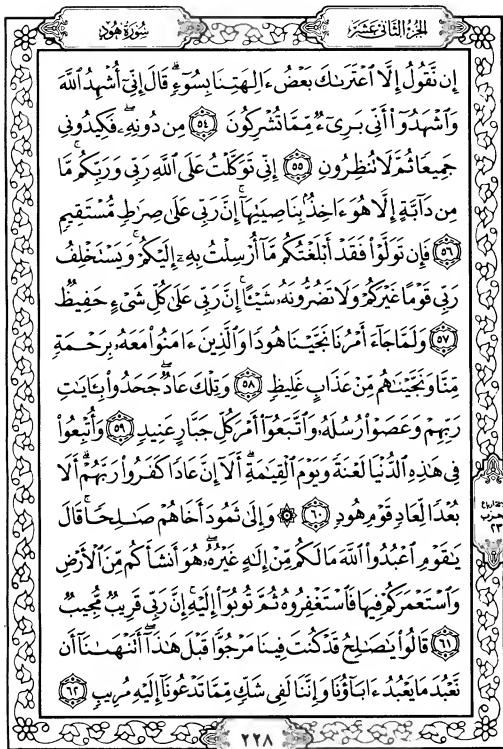 الجزء الثانى عشر
سورة هود
إِن نَّقُولُ إِلَّا ٱعۡتَرَىٰكَ بَعۡضُ ءَالِهَتِنَا بِسُوٓءٖۗ قَالَ إِنِّيٓ أُشۡهِدُ ٱللَّهَ
وَٱشۡهَدُوٓاْ أَنِّي بَرِيٓءٞ مِّمَّا تُشۡرِكُونَ ٥٤ مِن دُونِهِۦۖ فَكِيدُونِي
جَمِيعٗا ثُمَّ لَا تُنظِرُونِ ٥٥ إِنِّي تَوَكَّلۡتُ عَلَى ٱللَّهِ رَبِّي وَرَبِّكُمۚ مَّا
مِن دَآبَّةٍ إِلَّا هُوَ ءَاخِذُۢ بِنَاصِيَتِهَآۚ إِنَّ رَبِّي عَلَىٰ صِرَٰطٖ مُّسۡتَقِيمٖ
٥٦ فَإِن تَوَلَّوۡاْ فَقَدۡ أَبۡلَغۡتُكُم مَّآ أُرۡسِلۡتُ بِهِۦٓ إِلَيۡكُمۡۚ وَيَسۡتَخۡلِفُ
رَبِّي قَوۡمًا غَيۡرَكُمۡ وَلَا تَضُرُّونَهُۥ شَيۡـًٔاۚ إِنَّ رَبِّي عَلَىٰ كُلِّ شَيۡءٍ حَفِيظٞ
٥٧ وَلَمَّا جَآءَ أَمۡرُنَا نَجَّيۡنَا هُودٗا وَٱلَّذِينَ ءَامَنُواْ مَعَهُۥ بِرَحۡمَةٖ
مِّنَّا وَنَجَّيۡنَٰهُم مِّنۡ عَذَابٍ غَلِيظٖ ٥٨ وَتِلۡكَ عَادٞۖ جَحَدُواْ بِـَٔايَٰتِ
رَبِّهِمۡ وَعَصَوۡاْ رُسُلَهُۥ وَٱتَّبَعُوٓاْ أَمۡرَ كُلِّ جَبَّارٍ عَنِيدٖ ٥٩ وَأُتۡبِعُواْ
فِي هَٰذِهِ ٱلدُّنۡيَا لَعۡنَةٗ وَيَوۡمَ ٱلۡقِيَٰمَةِۗ أَلَآ إِنَّ عَادٗا كَفَرُواْ رَبَّهُمۡۗ أَلَا
بُعۡدٗا لِّعَادٖ قَوۡمِ هُودٖ ٦٠ ۞ وَإِلَىٰ ثَمُودَ أَخَاهُمۡ صَٰلِحٗاۚ قَالَ
يَٰقَوۡمِ ٱعۡبُدُواْ ٱللَّهَ مَا لَكُم مِّنۡ إِلَٰهٍ غَيۡرُهُۥۖ هُوَ أَنشَأَكُم مِّنَ ٱلۡأَرۡضِ
وَٱسۡتَعۡمَرَكُمۡ فِيهَا فَٱسۡتَغۡفِرُوهُ ثُمَّ تُوبُوٓاْ إِلَيۡهِۚ إِنَّ رَبِّي قَرِيبٞ مُّجِيبٞ
٦١ قَالُواْ يَٰصَٰلِحُ قَدۡ كُنتَ فِينَا مَرۡجُوّٗا قَبۡلَ هَٰذَآۖ أَتَنۡهَىٰنَآ أَن
نَّعۡبُدَ مَا يَعۡبُدُ ءَابَآؤُنَا وَإِنَّنَا لَفِي شَكّٖ مِّمَّا تَدۡعُونَآ إِلَيۡهِ مُرِيبٖ ٦٢
الحزب
٢٣
٢٢٨